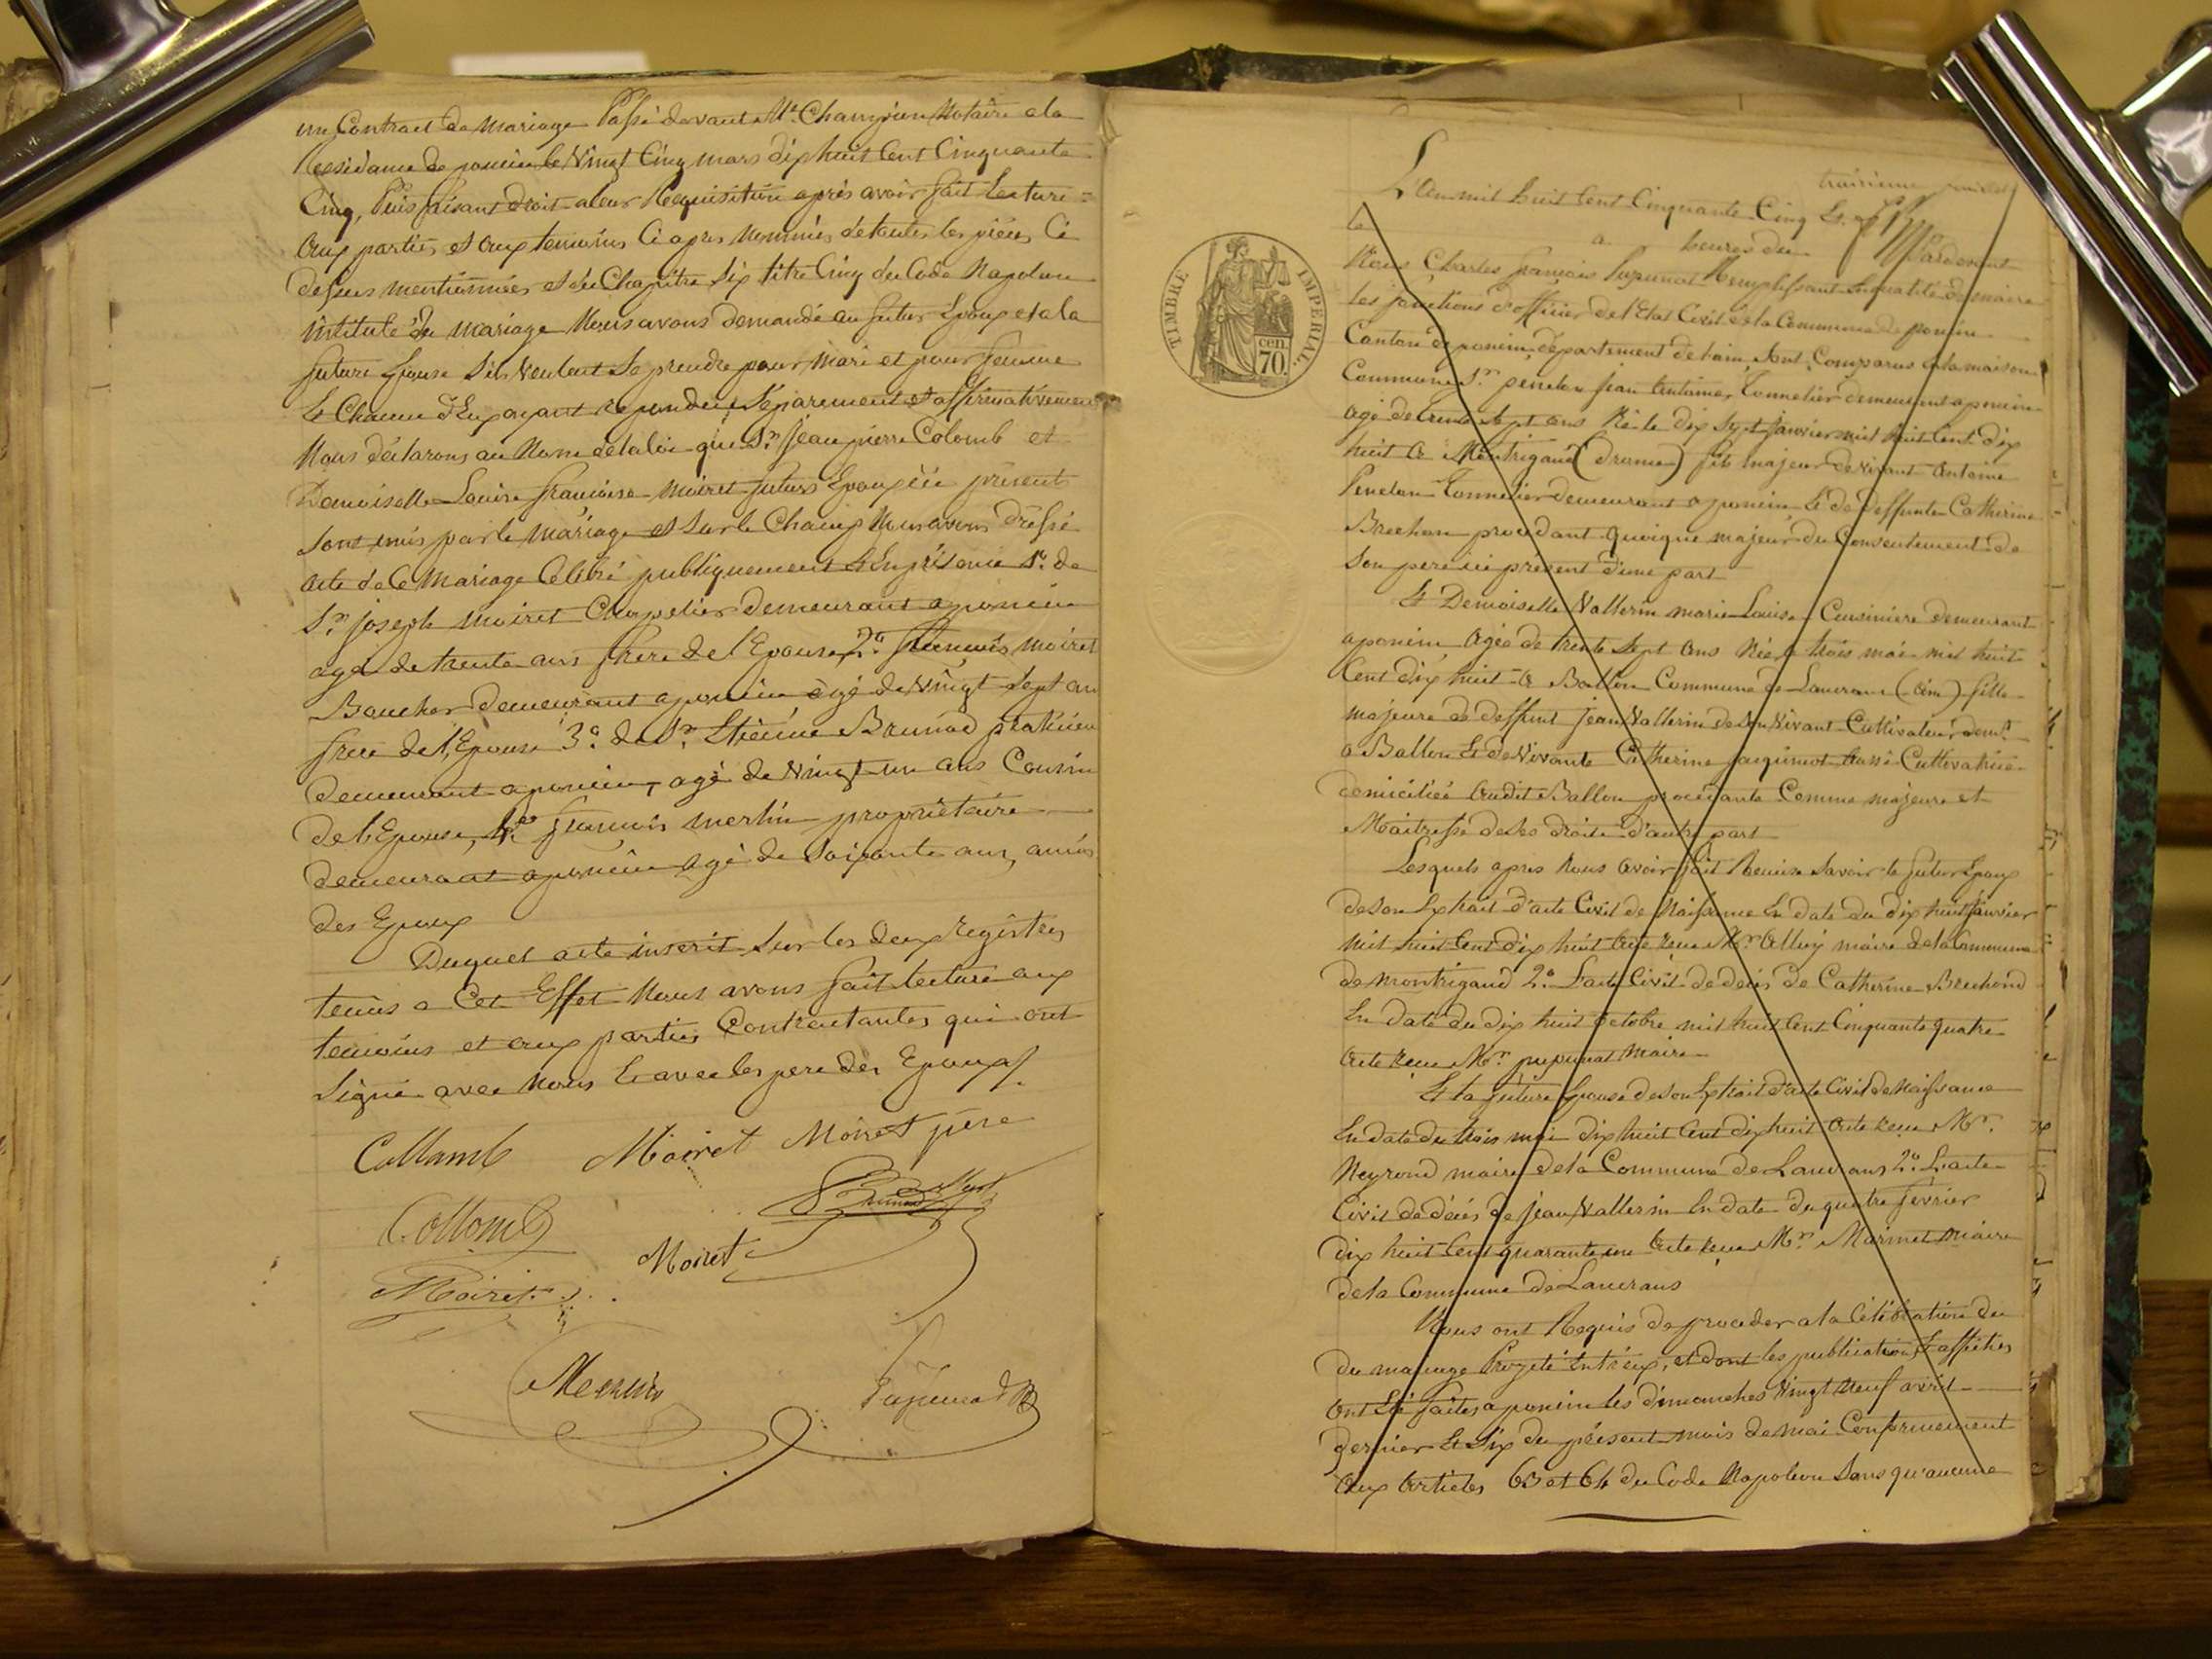 un Contrat de Mariage Passé devant Me Champion Notaire a la
Residance de poncin le Vingt Cinq mars dix huit Cent Cinquante
Cinq, Puis faisant droit a leur Requisition après avoir fait Lecture
aux parties et aux temoins Ci apres Nommés de toutes les pièces Ci
dessus mentionnées et du Chapitre Six titre Cinq du Code Napoleon
intitulé Du mariage Nous avons demandé au futur Epoux et a la
future Epouse S'ils Veulent Se prendre pour Mari et pour femme
Et Chacun d'Eux ayant repondu Séparement et affirmativement
Nous déclarons au Nom de la loi que Sr. Jean pierre Colomb et
Demoiselle Louise françoise Moiret futurs Epoux ici présents
Sont unis par le Mariage et Sur le Champ Nous avons Dressé
acte de Ce Mariage Célébré publiquement Et En présence 1º de
Sr. joseph Moiret Chapelier demeurant a poncin
agé de trente ans frère de l'Epouse, 2º françois Moiret
Boucher demeurant a poncin agé de Vingt Sept ans
frère de l'Epouse 3º de Sr. Etienne Brunod praticien
demeurant a poncin, agé de Vingt un ans Cousin
de l'Epouse, 4º françois merlin propriétaire
demeurant a poncin agé de Soixante ans, amis
des Epoux
Duquel acte inscrit Sur les deux registres
tenus a Cet Effet Nous avons fait lecture aux
temoins et aux parties Contractantes qui ont
Signé avec Nous Et avec les pere des Epoux
Collomb Moiret Moiret père
Collomb Brunod
Moiret
Moiret
Pupunat
TIMBRE IMPÉRIAL
cen. 70.
L'An mil huit Cent Cinquante Cinq Et
le a heures du Pardevant
Nous Charles françois Pupunat Remplissant En qualité de maire
les fonctions d'officier de l'Etat Civil de la Commune de poncin
Canton de poncin, département de l'ain, Sont Comparus a la maison
Commune Sr. penelon jean Antoine, Tonnelier demeurant a poncin
agé de trente Sept ans Né le dix Sept janvier mil huit Cent dix
huit a Montrigaud (Drome) fils majeur de vivant Antoine
Penelon Tonnelier demeurant a poncin Et de deffunte Catherine
Brechon procedant quoique majeur du Consentement de
Son pere ici présent d'une part
Et Demoiselle Vallerin marie Louise Cuisinière demeurant
a poncin agée de trente Sept ans Née le trois mai mil huit
Cent dix huit a Ballon Commune de Lancrans (ain) fille
majeure de deffunt Jean Vallerin de Son Vivant Cultivateur demt.
a Ballon Et de Vivante Catherine jaquinot aussi Cultivatrice
domiciliée audit Ballon procédante Comme majeure et
Maitresse de Ses droits d'autre part
Lesquels apres Nous avoir fait Remise Savoir le futur Epoux
de Son Extrait d'acte Civil de Naissance En date du dix huit janvier
mil huit Cent dix huit acte reçu Mr. maire de la Commune
de montrigaud 2º L'acte Civil de decès de Catherine Brechond
En date du dix huit octobre mil huit Cent Cinquante quatre
acte reçu Mr. pupunat Maire
Et la future Epouse de Son Extrait d'acte Civil de Naissance
En date du trois mai dix huit Cent dix huit acte reçu Mr.
Neyrond maire de la Commune de Lancrans 2º L'acte
Civil de décès de Jean Vallerin En date du quatre fevrier
dix huit Cent quarante un acte reçu Mr. Marinet maire
de la Commune de Lancrans
Nous ont Requis de proceder a la Célébration du
du mariage Projeté Entr'eux, et dont les publications Et affiches
ont Eté faites a poncin les dimanches Vingt Neuf avril
dernier Et Six du présent mois de mai Conformement
aux articles 63 et 64 du Code Napoleon Sans qu'aucune